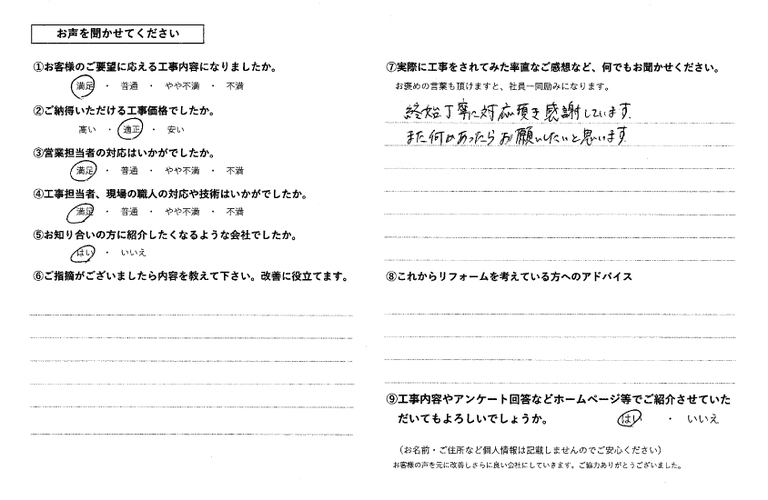 お声を聞かせてください
①お客様のご要望に応える工事内容になりましたか。
満足 ・ 普通 ・ やや不満 ・ 不満
②ご納得いただける工事価格でしたか。
高い ・ 適正 ・ 安い
③営業担当者の対応はいかがでしたか。
満足 ・ 普通 ・ やや不満 ・ 不満
④工事担当者、現場の職人の対応や技術はいかがでしたか。
満足 ・ 普通 ・ やや不満 ・ 不満
⑤お知り合いの方に紹介したくなるような会社でしたか。
はい ・ いいえ
⑥ご指摘がございましたら内容を教えて下さい。改善に役立てます。
⑦実際に工事をされてみた率直なご感想など、何でもお聞かせください。
お褒めの言葉も頂けますと、社員一同励みになります。
終始丁寧に対応頂き感謝しています。
また何かあったらお願いしたいと思います。
⑧これからリフォームを考えている方へのアドバイス
⑨工事内容やアンケート回答などホームページ等でご紹介させていた
だいてもよろしいでしょうか。 はい ・ いいえ
（お名前・ご住所など個人情報は記載しませんのでご安心ください）
お客様の声を元に改善しさらに良い会社にしていきます。ご協力ありがとうございました。